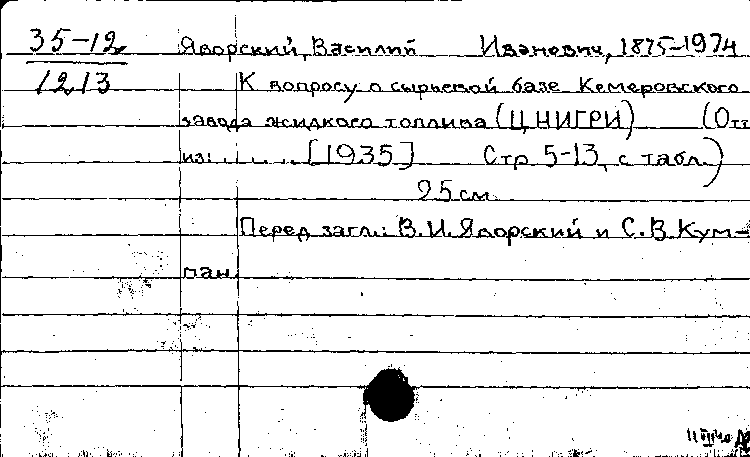 35-12
1213
Яворский, Василий Иванович, 1875-1974
К вопросу о сырьевой базе Кемеровского
завода жидкого топлива (ЦНИГРИ) (Отт
из: . . . . . [1935] Стр. 5-13, с табл.)
25 см.
Перед загл.: В.И. Яворский и С.В. Кум-
пан.